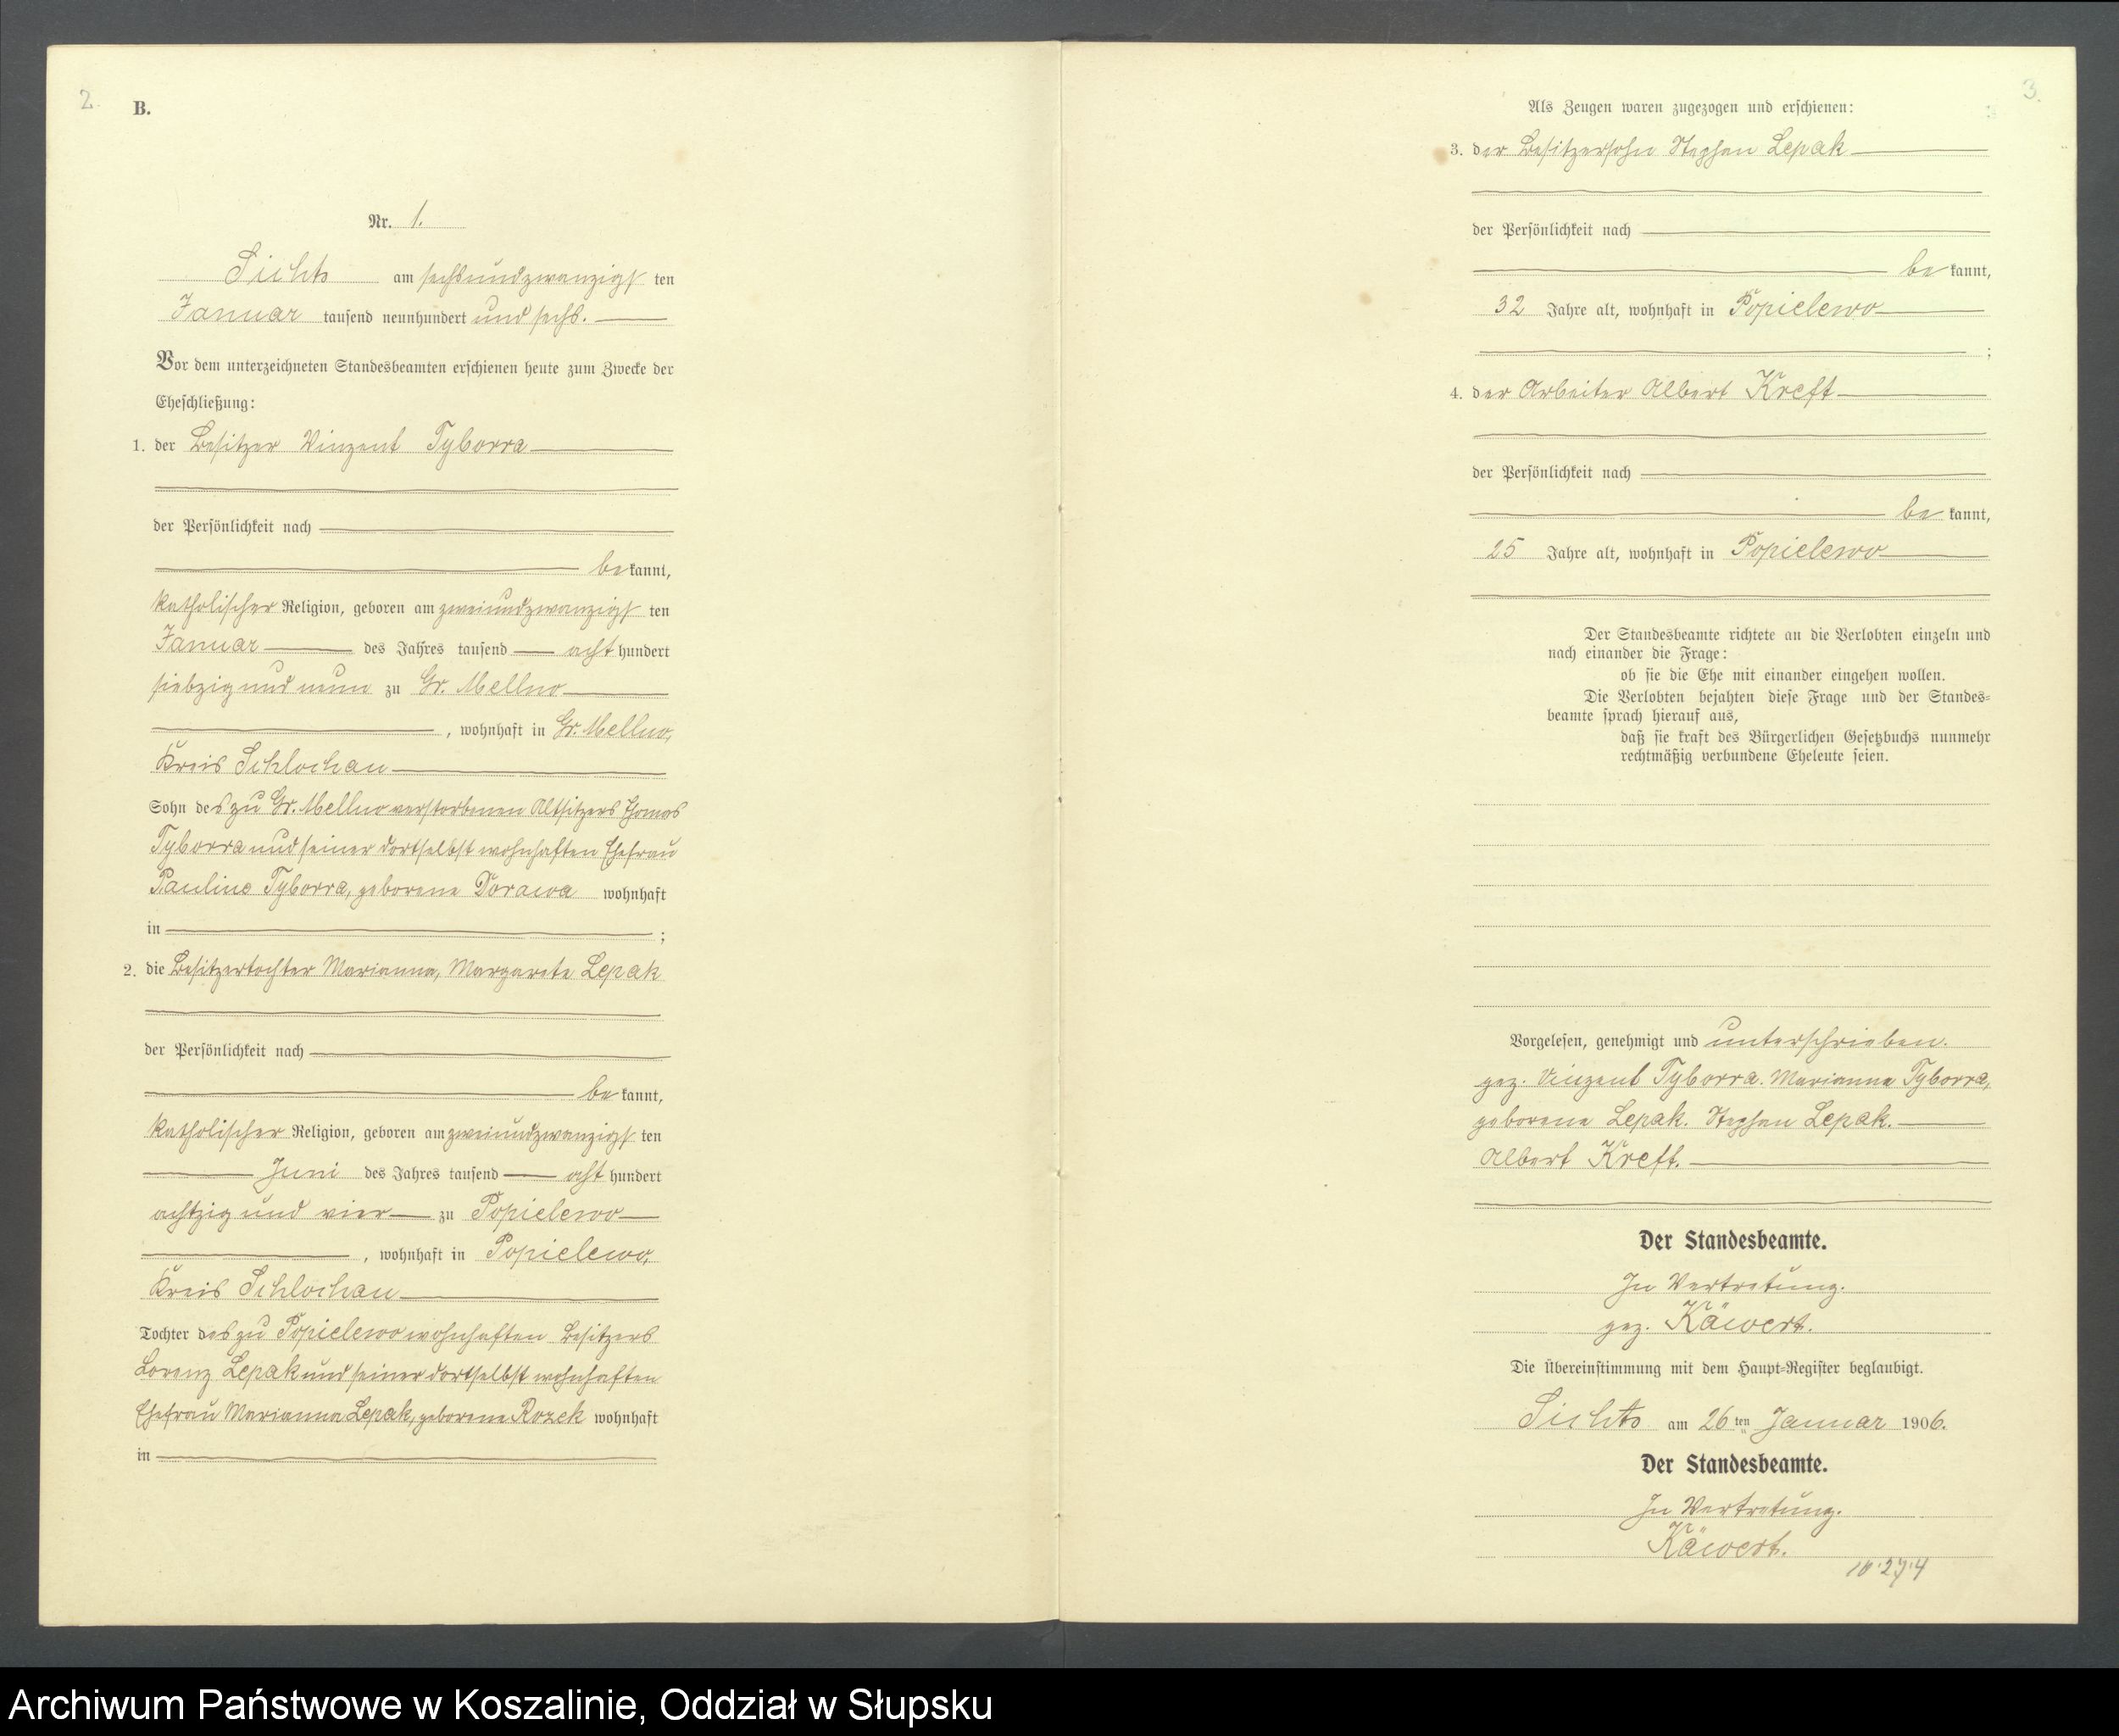 2.
B.
Nr. 1.
Sichts am sechsundzwanzigsten
Januar tausend neunhundert und sechs.
Vor dem unterzeichneten Standesbeamten erschienen heute zum Zwecke der
Eheschließung:
1. der Besitzer Vinzent Tyborra
der Persönlichkeit nach
bekannt,
katholischer Religion, geboren am zweiundzwanzigsten
Januar des Jahres tausend acht hundert
siebzig und neun zu Gr. Mellno
, wohnhaft in Gr. Mellno,
Kreis Schlochau
Sohn des zu Gr. Mellno verstorbenen Altsitzers Thomas
Tyborra und seiner dortselbst wohnhaften Ehefrau
Pauline Tyborra, geborene Dorawa wohnhaft
in ;
2. die Besitzertochter Marianna, Margarete Lepak
der Persönlichkeit nach
bekannt,
katholischer Religion, geboren am zweiundzwanzigsten
Juni des Jahres tausend acht hundert
achtzig und vier zu Popielewo
, wohnhaft in Popielewo,
Kreis Schlochau
Tochter des zu Popielewo wohnhaften Besitzers
Lorenz Lepak und seiner dortselbst wohnhaften
Ehefrau Marianna Lepak, geborene Rozek wohnhaft
in
3.
Als Zeugen waren zugezogen und erschienen:
3. der Besitzersohn Stephan Lepak
der Persönlichkeit nach
bekannt,
32 Jahre alt, wohnhaft in Popielewo
;
4. der Arbeiter Albert Kreft
der Persönlichkeit nach
bekannt,
25 Jahre alt, wohnhaft in Popielewo
Der Standesbeamte richtete an die Verlobten einzeln und
nach einander die Frage:
ob sie die Ehe mit einander eingehen wollen.
Die Verlobten bejahten diese Frage und der Standes-
beamte sprach hierauf aus,
daß sie kraft des Bürgerlichen Gesetzbuchs nunmehr
rechtmäßig verbundene Eheleute seien.
Vorgelesen, genehmigt und unterschrieben.
gez. Vinzent Tyborra. Marianna Tyborra,
geborene Lepak. Stephan Lepak.
Albert Kreft.
Der Standesbeamte.
In Vertretung.
gez. Käwert.
Die Übereinstimmung mit dem Haupt-Register beglaubigt.
Sichts am 26ten Januar 1906.
Der Standesbeamte.
In Vertretung.
Käwert.
Archiwum Państwowe w Koszalinie, Oddział w Słupsku